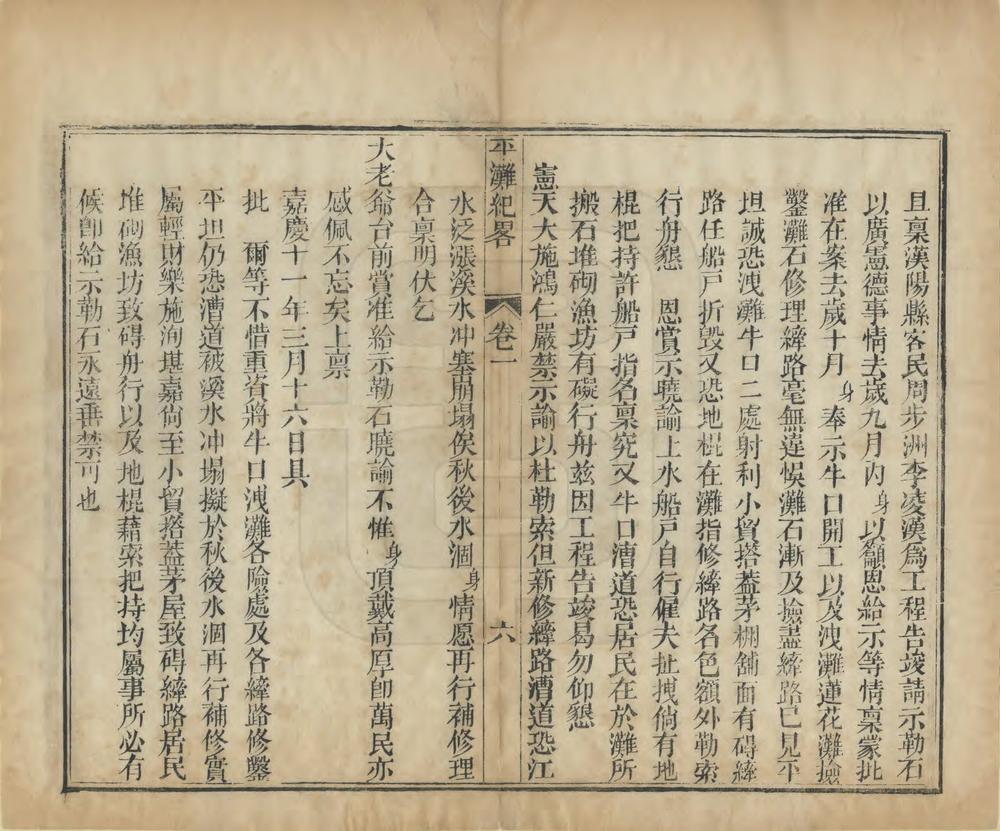 且稟漢陽縣客民周步洲李凌漢爲工程告竣請示勒石
以廣憲德事情去歲九月內身以籲恩給示等情稟蒙批
准在案去歲十月身奉示牛口開工以及洩灘蓮花灘撿
鑿灘石修理縴路毫無違悞灘石漸及撿盡縴路已見平
坦誠恐洩灘牛口二處射利小貿搭蓋茅棚舖面有碍縴
路任船戶折毀又恐地棍在灘指修縴路名色額外勒索
行舟懇 恩賞示曉諭上水船戶自行僱夫扯拽倘有地
棍把持許船戶指名稟究又牛口漕道恐居民在於灘所
搬石堆砌漁坊有礙行舟兹因工程告竣曷勿仰懇
憲天大施鴻仁嚴禁示諭以杜勒索但新修縴路漕道恐江
平灘紀畧 卷一 六
水泛漲溪水冲塞崩塌俟秋後水涸身情愿再行補修理
合稟明伏乞
大老爺台前賞准給示勒石曉諭不惟身頂戴高厚卽萬民亦
感佩不忘矣上稟
嘉慶十一年三月十六日具
批 爾等不惜重資將牛口洩灘各險處及各縴路修鑿
平坦仍恐漕道被溪水冲塌擬於秋後水涸再行補修實
屬輕財樂施洵堪嘉尙至小貿搭蓋茅屋致碍縴路居民
堆砌漁坊致碍舟行以及地棍藉索把持均屬事所必有
候卽給示勒石永遠垂禁可也